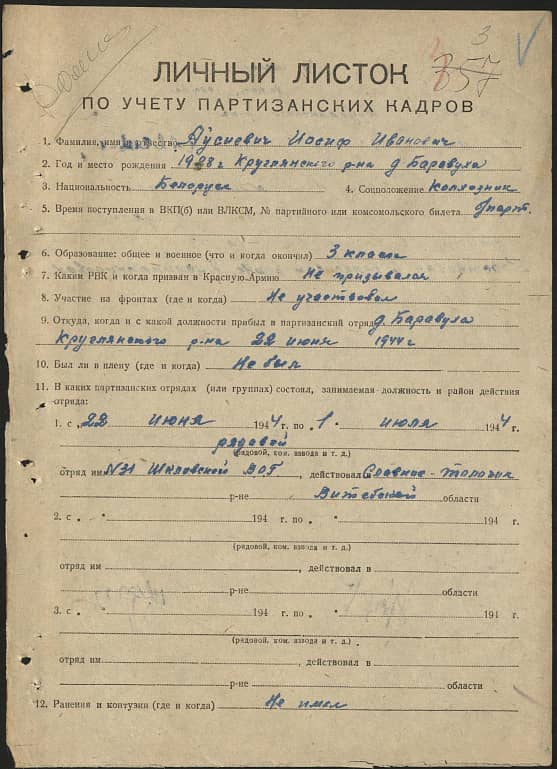 3
357
ЛИЧНЫЙ ЛИСТОК
ПО УЧЕТУ ПАРТИЗАНСКИХ КАДРОВ
1. Фамилия, имя и отчество Дусиевич Иосиф Иванович
2. Год и место рождения Круглянского р-на д. Баравуха
3. Национальность Белорусс 4. Соцположение Колхозник
5. Время поступления в ВКП(б) или ВЛКСМ, № партийного или комсомольского билета. б/парт.
6. Образование: общее и военное (что и когда окончил) 3 класса
7. Каким РВК и когда призван в Красную Армию Не призывался
8. Участие на фронтах (где и когда) Не участвовал
9. Откуда, когда и с какой должности прибыл в партизанский отряд д. Баравуха
Круглянского р-на 22 июня 1944 г
10. Был ли в плену (где и когда) Не был
11. В каких партизанских отрядах (или группах) состоял, занимаемая должность и район действия
отряда:
1. с „22 июня 1944 г. по „1 " июля 1944 г.
рядовой
(рядовой, ком. взвода и т. д.)
отряд им N31 Шкловской ВОГ, действовал Славное-Толочин
р-не Витебской области
2. с „ " 194 г. по „ " 194 г.
(рядовой, ком. взвода и т. д.)
отряд им , действовал в
р-не области
3. с „ " 194 г. по „ " 194 г.
(рядовой, ком. взвода и т. д.)
отряд им , действовал в
р-не области
12. Ранения и контузии (где и когда) Не имел